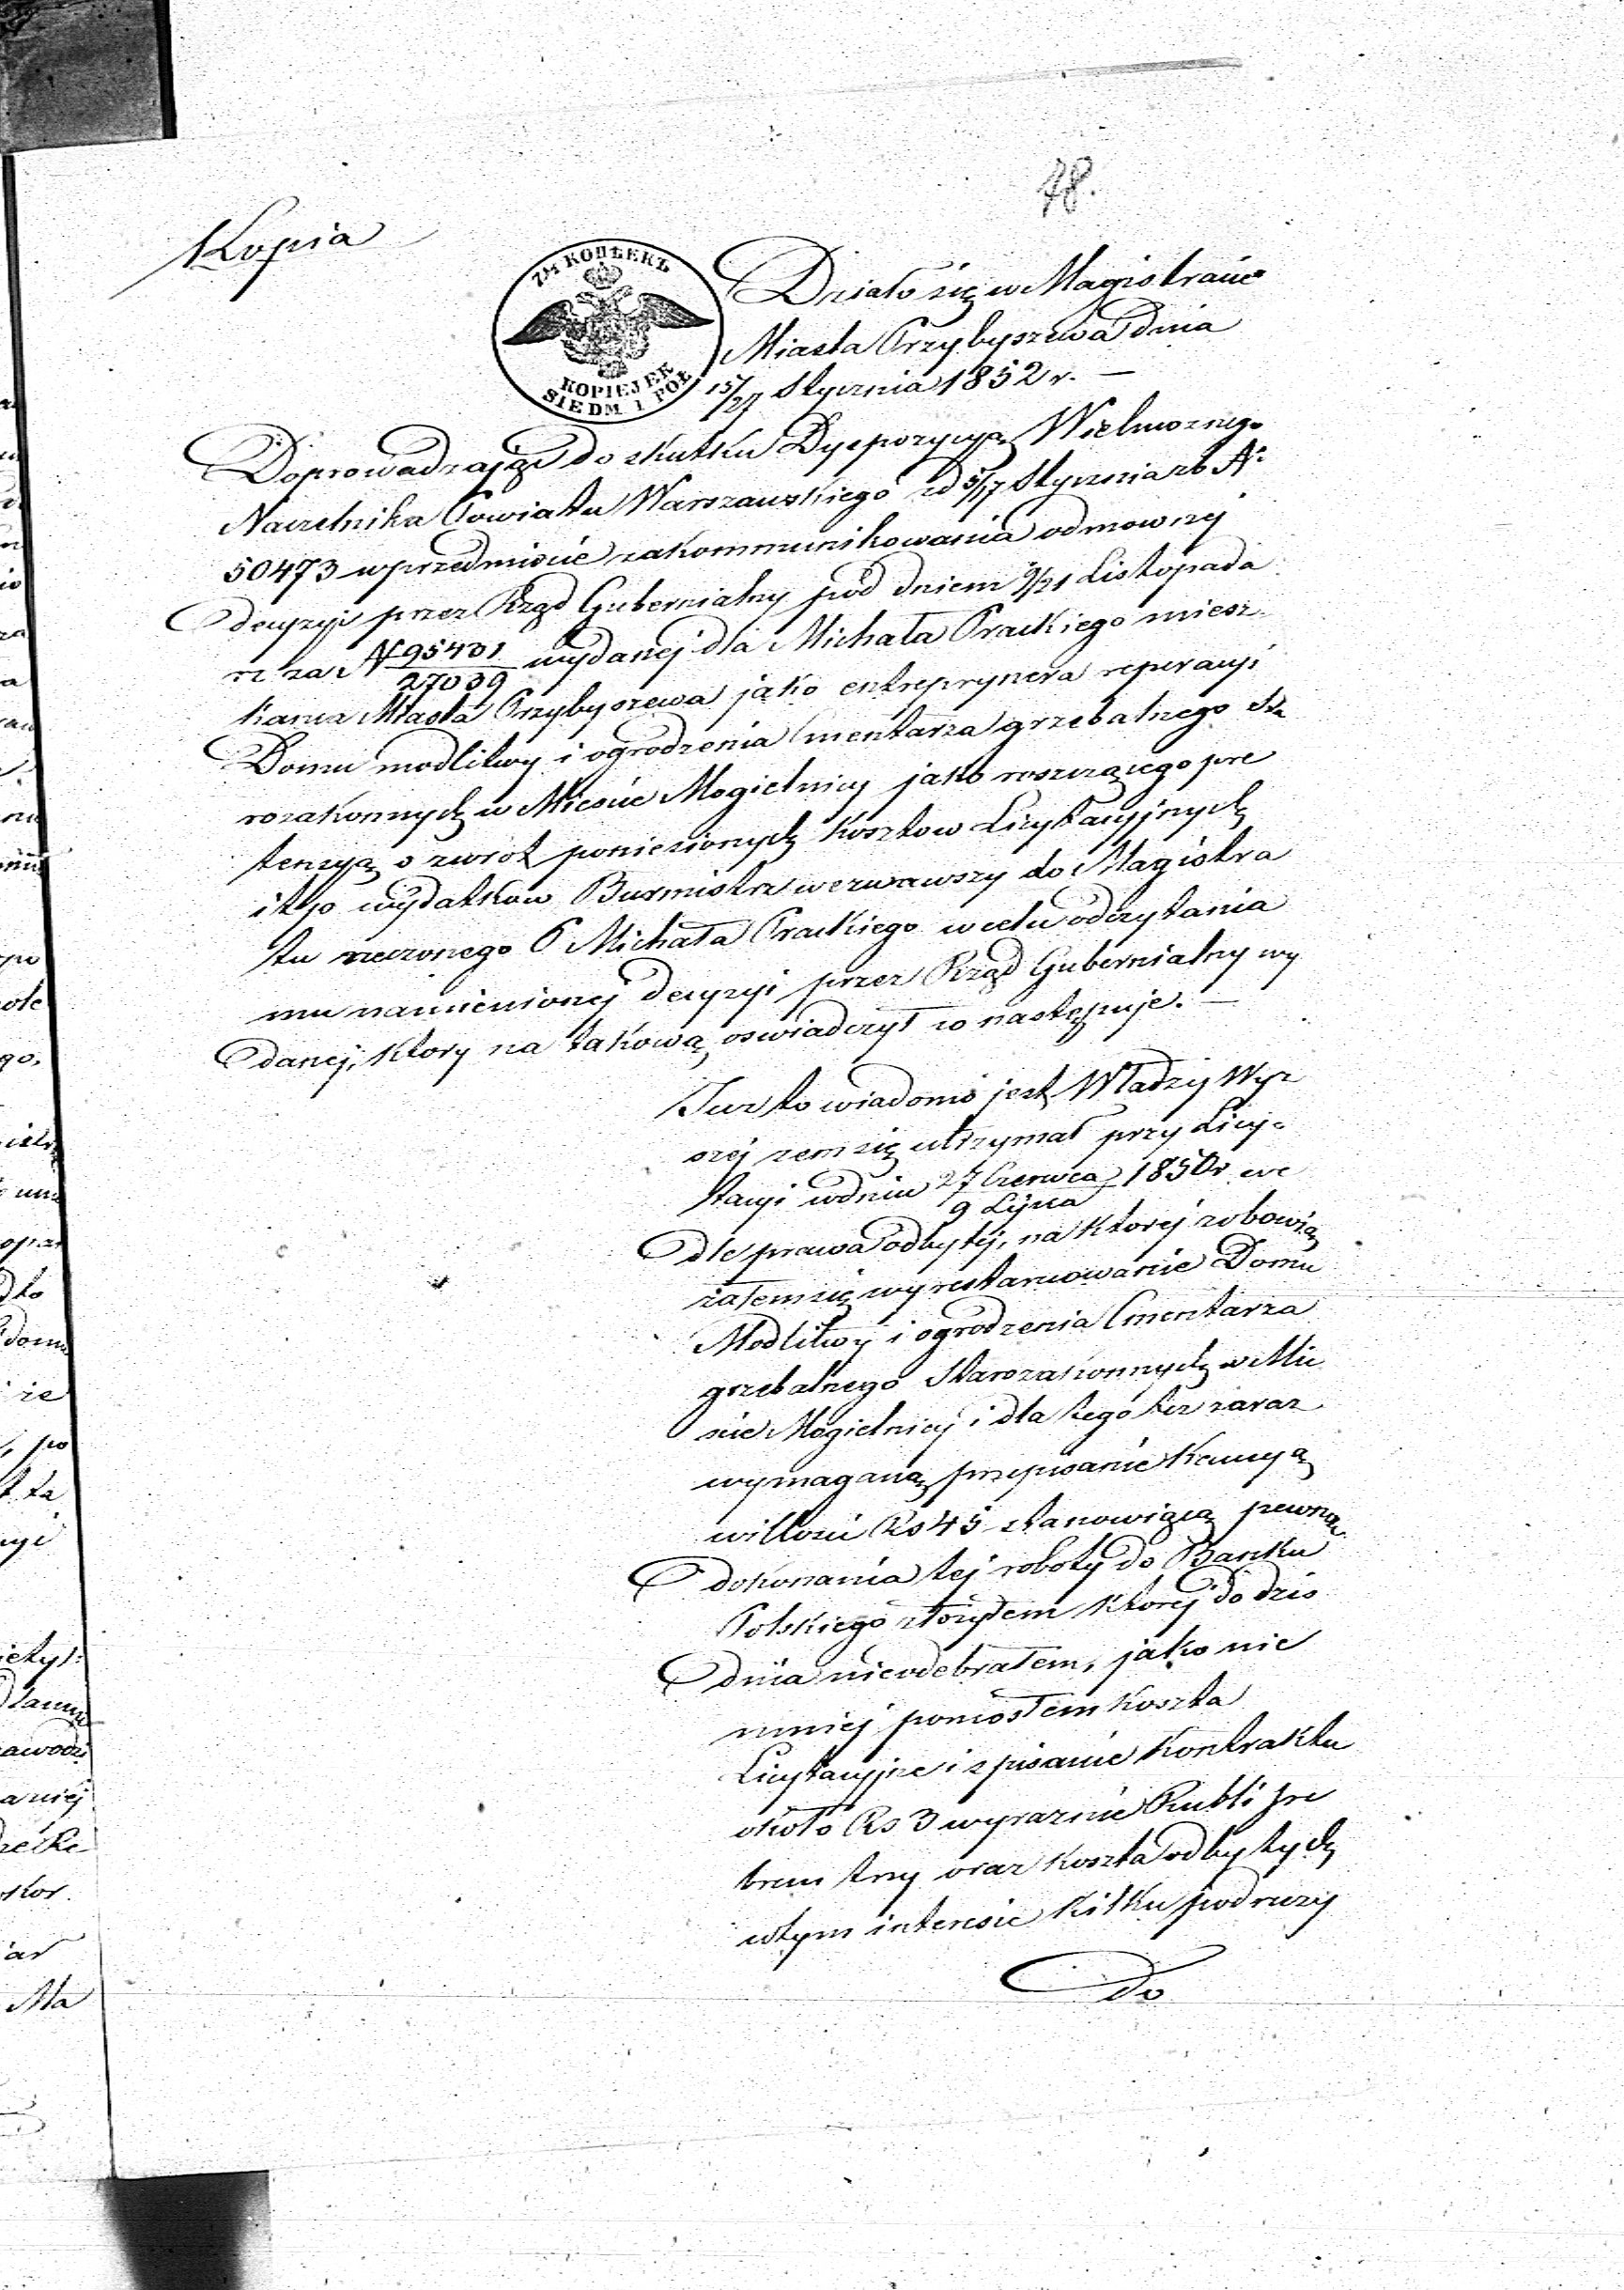 48.
Kopia
7½ КОПѢЕКЪ
KOPIEJEK
SIEDM I PÓŁ
Działo się w Magistracie
Miasta Przybyszewa Dnia
15/27 Stycznia 1852 r. —
Doprowadzając do skutku Dyspozycyą Wielmoznego
Naczelnika Powiatu Warszawskiego z d 5/17 Stycznia rb N:
50473 w przedmiocie zakommunikowania odmownej
decyzyi przez Rząd Gubernialny pod dniem 9/21 Listopada
rz za N 95401/27039 wydanej dla Michała Prackiego miesz
kańca Miasta Przybyszewa jako entreprynera reperacyi
Domu modlitwy i ogrodzenia Cmentarza grzebalnego Sta
rozakonnych w Mieście Mogielnicy jako roszczącego pre
tensyą o zwrot poniesionych Kosztow Licytacyjnych
i t.p. wydatkow Burmistrz wezwawszy do Magistra
tu rzeczonego P Michała Prackiego w celu odczytania
mu namienionej decyzyi przez Rząd Gubernialny wy
danej, ktory na takową oswiadczył co następuje. —
Juz to wiadomo jest Władzy Wyz
szej zem się utrzymał przy Licy-
tacyi w dniu 27 Czerwca/9 Lipca 1850 r. we
dle prawa odbytej, na ktorej zobowią
załem się wyrestaurowanie Domu
Modlitwy i ogrodzenia Cmentarza
grzebalnego Starozakonnych w Mie
scie Mogielnicy i dla tego tez zaraz
wymaganą przepisanie Kaucyą
w ilości Rs 45 stanowiącą pewność
dokonania tej roboty do Banku
Polskiego złożyłem ktorej do dzis
dnia nieodebrałem, jako nie
mniej poniosłem Koszta
Licytacyjne i spisanie Kontraktu
około Rs 3 wyraznie Rubli sre
brem trzy oraz Koszta odbytych
w tym interesie kilku podrozy
do